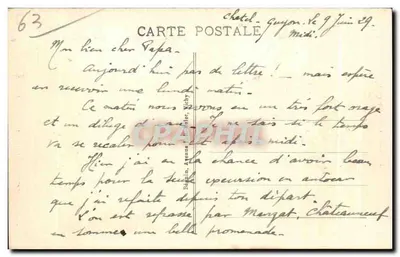 63
CARTE POSTALE
Chatel-Guyon, le 9 Juin 29.
Midi.
Mon bien cher Papa.
Aujourd'hui pas de lettre! — mais espère
en recevoir une lundi matin.
Ce matin nous avons eu un très fort orage
et un déluge d'eau. Je ne sais si le temps
va se recaler pour cet après midi.
Hier j'ai eu la chance d'avoir beau
temps pour la seule excursion en autocar
que j'ai refaite depuis ton départ.
L'on est repassé par Manzat, Châteauneuf
en somme une belle promenade.
CARPHIL